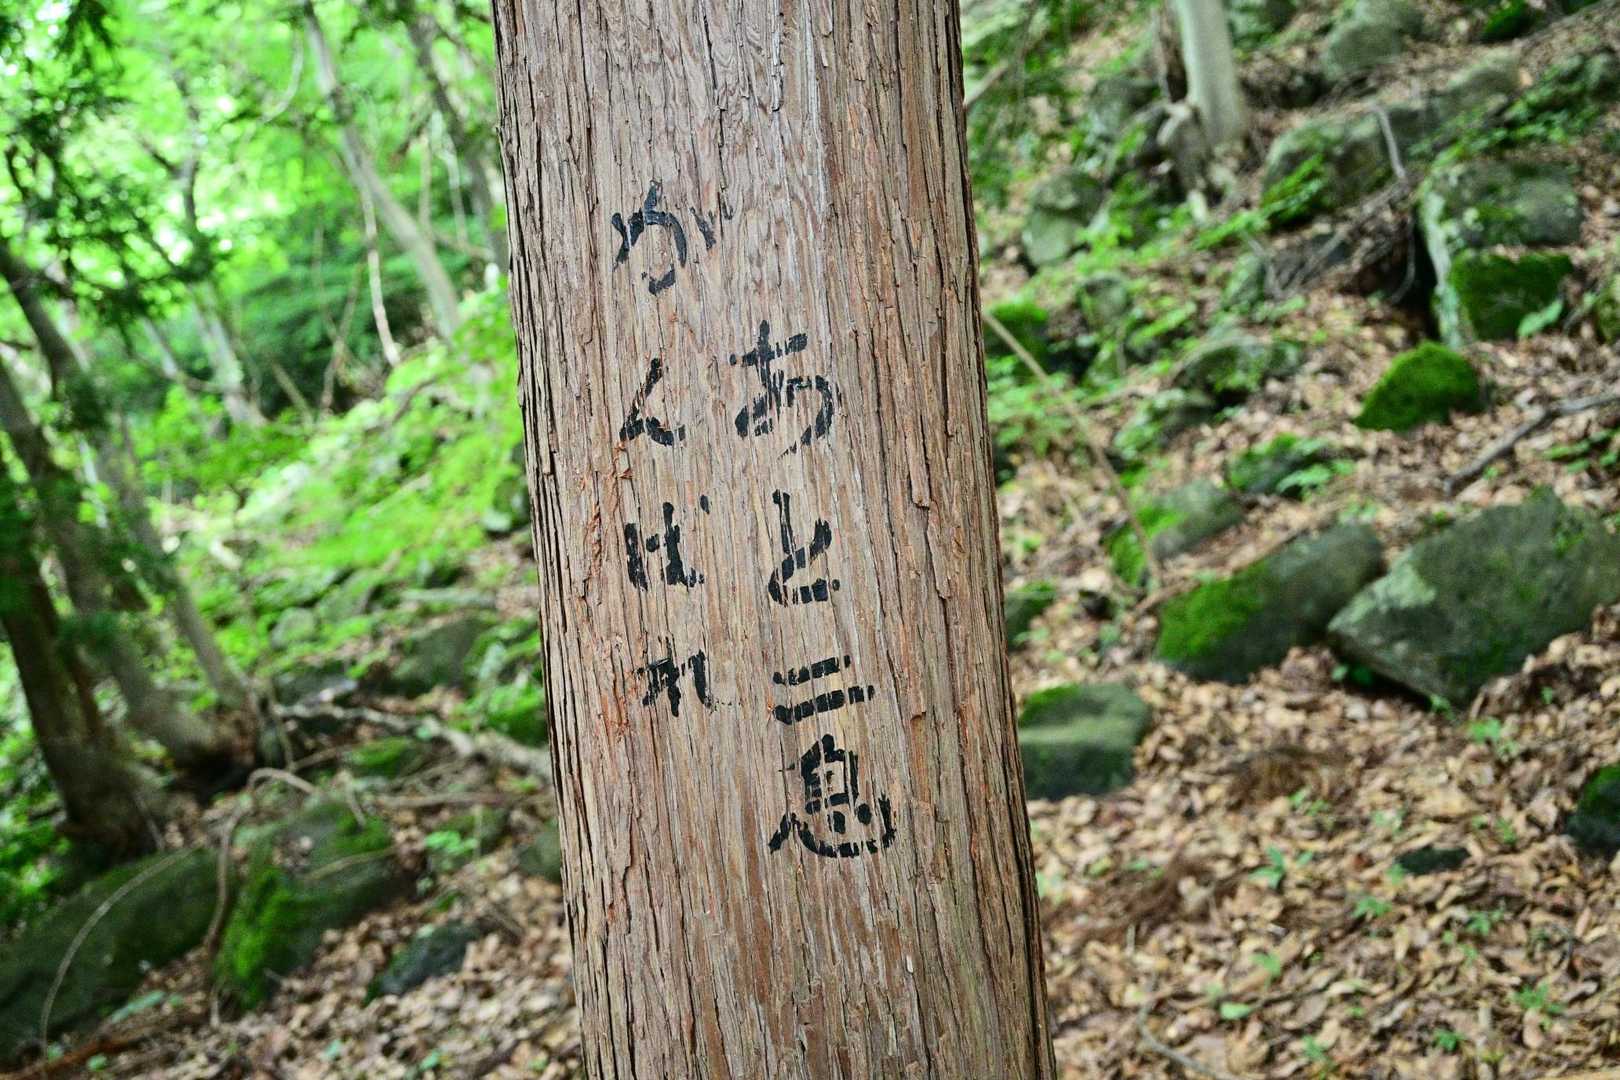 あと三息
がんばれ